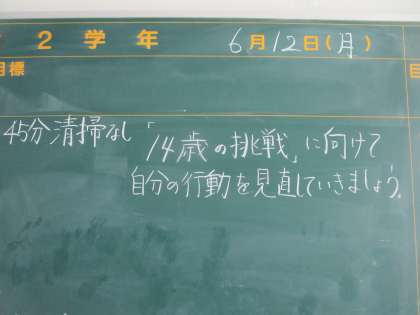 2学年 6月12日(月)
目標
45分清掃なし「14歳の挑戦」に向けて
自分の行動を見直していきましょう。